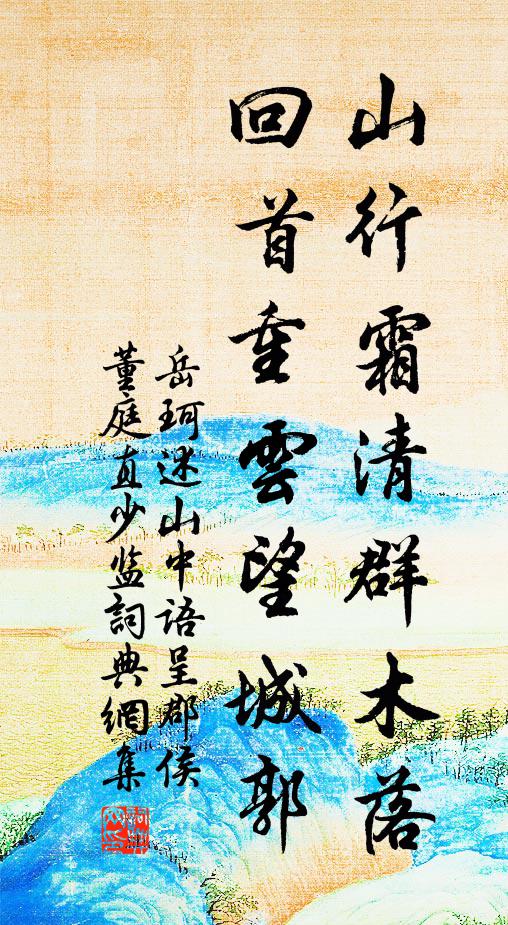 山行霜清群木落
回首重雲望城郭
岳珂述山中語呈郡侯
董庭直少监詞典網集